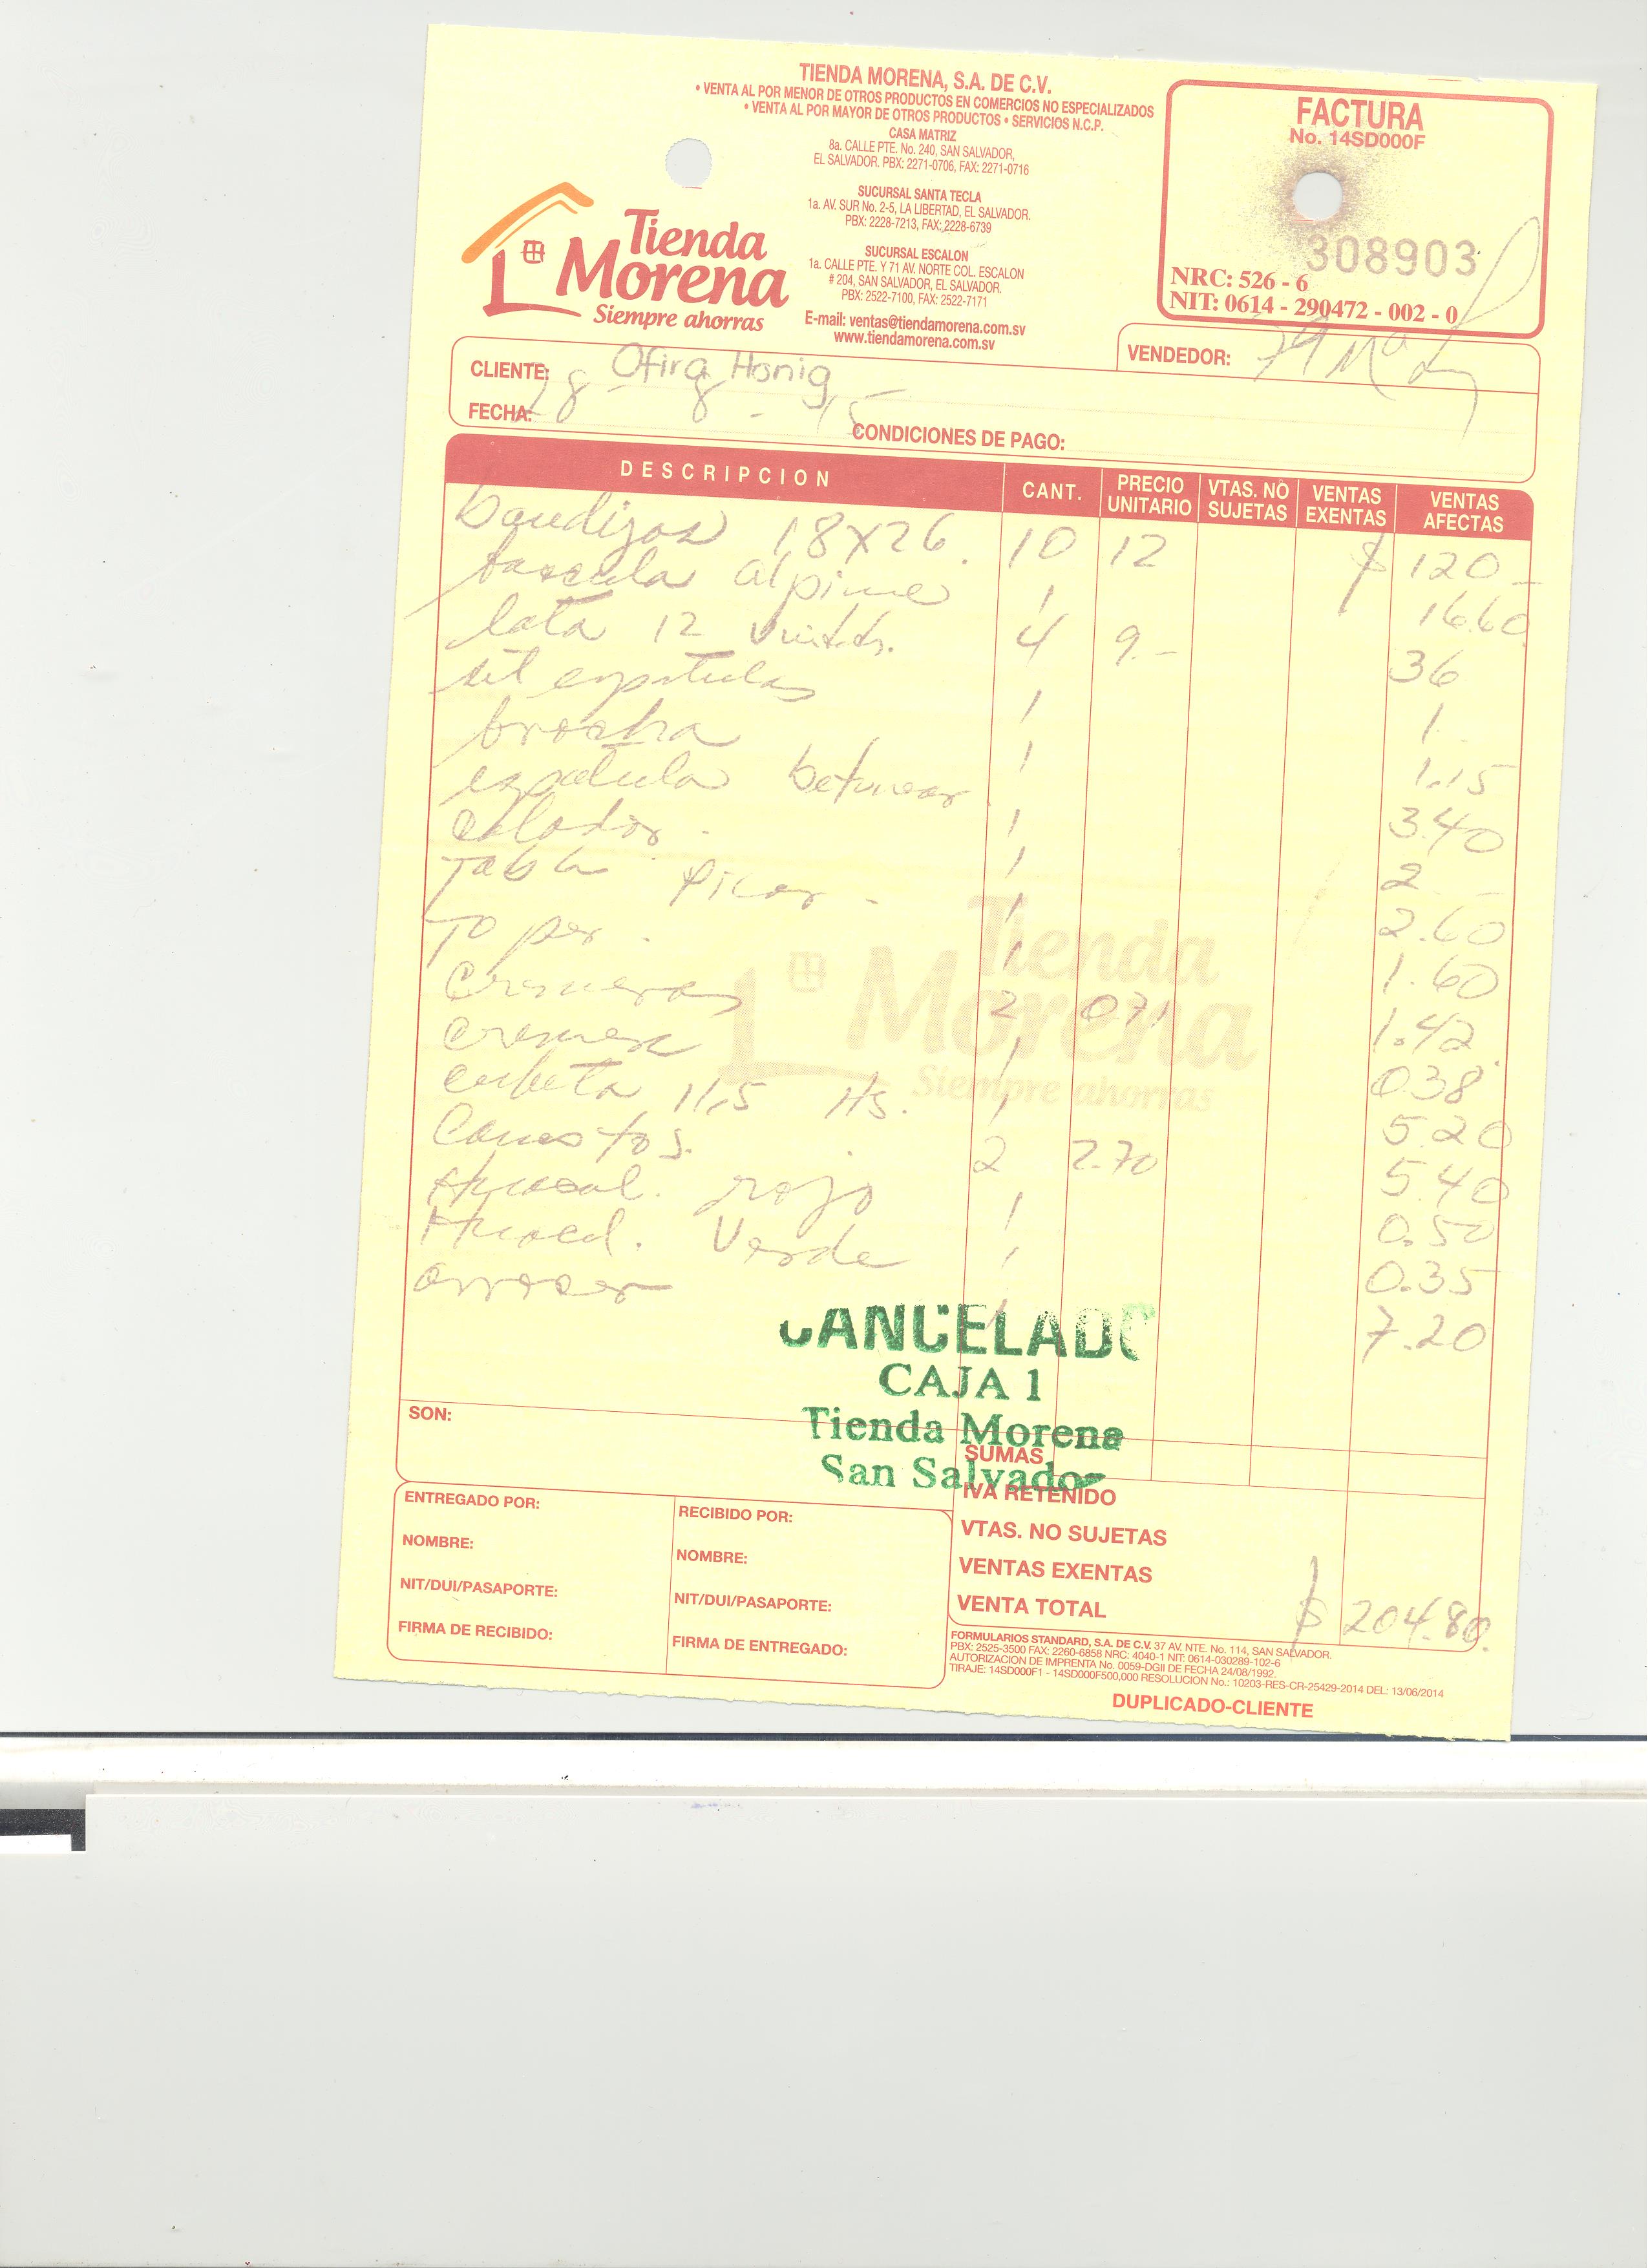 TIENDA MORENA, S.A. DE C.V.
• VENTA AL POR MENOR DE OTROS PRODUCTOS EN COMERCIOS NO ESPECIALIZADOS
• VENTA AL POR MAYOR DE OTROS PRODUCTOS • SERVICIOS N.C.P.
CASA MATRIZ
8a. CALLE PTE. No. 240, SAN SALVADOR,
EL SALVADOR. PBX: 2271-0706, FAX: 2271-0716
SUCURSAL SANTA TECLA
1a. AV. SUR No. 2-5, LA LIBERTAD, EL SALVADOR.
PBX: 2228-7213, FAX: 2228-6739
SUCURSAL ESCALON
1a. CALLE PTE. Y 71 AV. NORTE COL. ESCALON
# 204, SAN SALVADOR, EL SALVADOR.
PBX: 2522-7100, FAX: 2522-7171
E-mail: ventas@tiendamorena.com.sv
www.tiendamorena.com.sv
Tienda
Morena
Siempre ahorras
FACTURA
No. 14SD000F
308903
NRC: 526 - 6
NIT: 0614 - 290472 - 002 - 0
VENDEDOR:
CLIENTE: Ofira Honig
FECHA: 28 - 8 - 15
CONDICIONES DE PAGO:
DESCRIPCION CANT. PRECIO UNITARIO VTAS. NO SUJETAS VENTAS EXENTAS VENTAS AFECTAS
bandejas 18X26. 10 12 $ 120 -
bascula alpine 1 16.60
lata 12 4 9.- 36
set espatulas 1 1.
brocha 1 1.15
espatula betunear 1 3.40
colador. 1 2 -
Tabla picar - 1 2.60
Toper. 1 1.60
Cremeras 2 0.71 1.42
cremera 1 0.38
cubeta 11.5 lts. 1 5.20
Canastos. 2 2.70 5.40
rojo 1 0.50
Verde 1 0.35
1 7.20
Tienda
Morena
Siempre ahorras
CANCELADO
CAJA 1
Tienda Morena
San Salvador
SON:
SUMAS
IVA RETENIDO
VTAS. NO SUJETAS
VENTAS EXENTAS
VENTA TOTAL $ 204.80.
ENTREGADO POR:
NOMBRE:
NIT/DUI/PASAPORTE:
FIRMA DE RECIBIDO:
RECIBIDO POR:
NOMBRE:
NIT/DUI/PASAPORTE:
FIRMA DE ENTREGADO:
FORMULARIOS STANDARD, S.A. DE C.V. 37 AV. NTE. No. 114, SAN SALVADOR.
PBX: 2525-3500 FAX: 2260-6858 NRC: 4040-1 NIT: 0614-030289-102-6
AUTORIZACION DE IMPRENTA No. 0059-DGII DE FECHA 24/08/1992.
TIRAJE: 14SD000F1 - 14SD000F500,000 RESOLUCION No.: 10203-RES-CR-25429-2014 DEL: 13/06/2014
DUPLICADO-CLIENTE